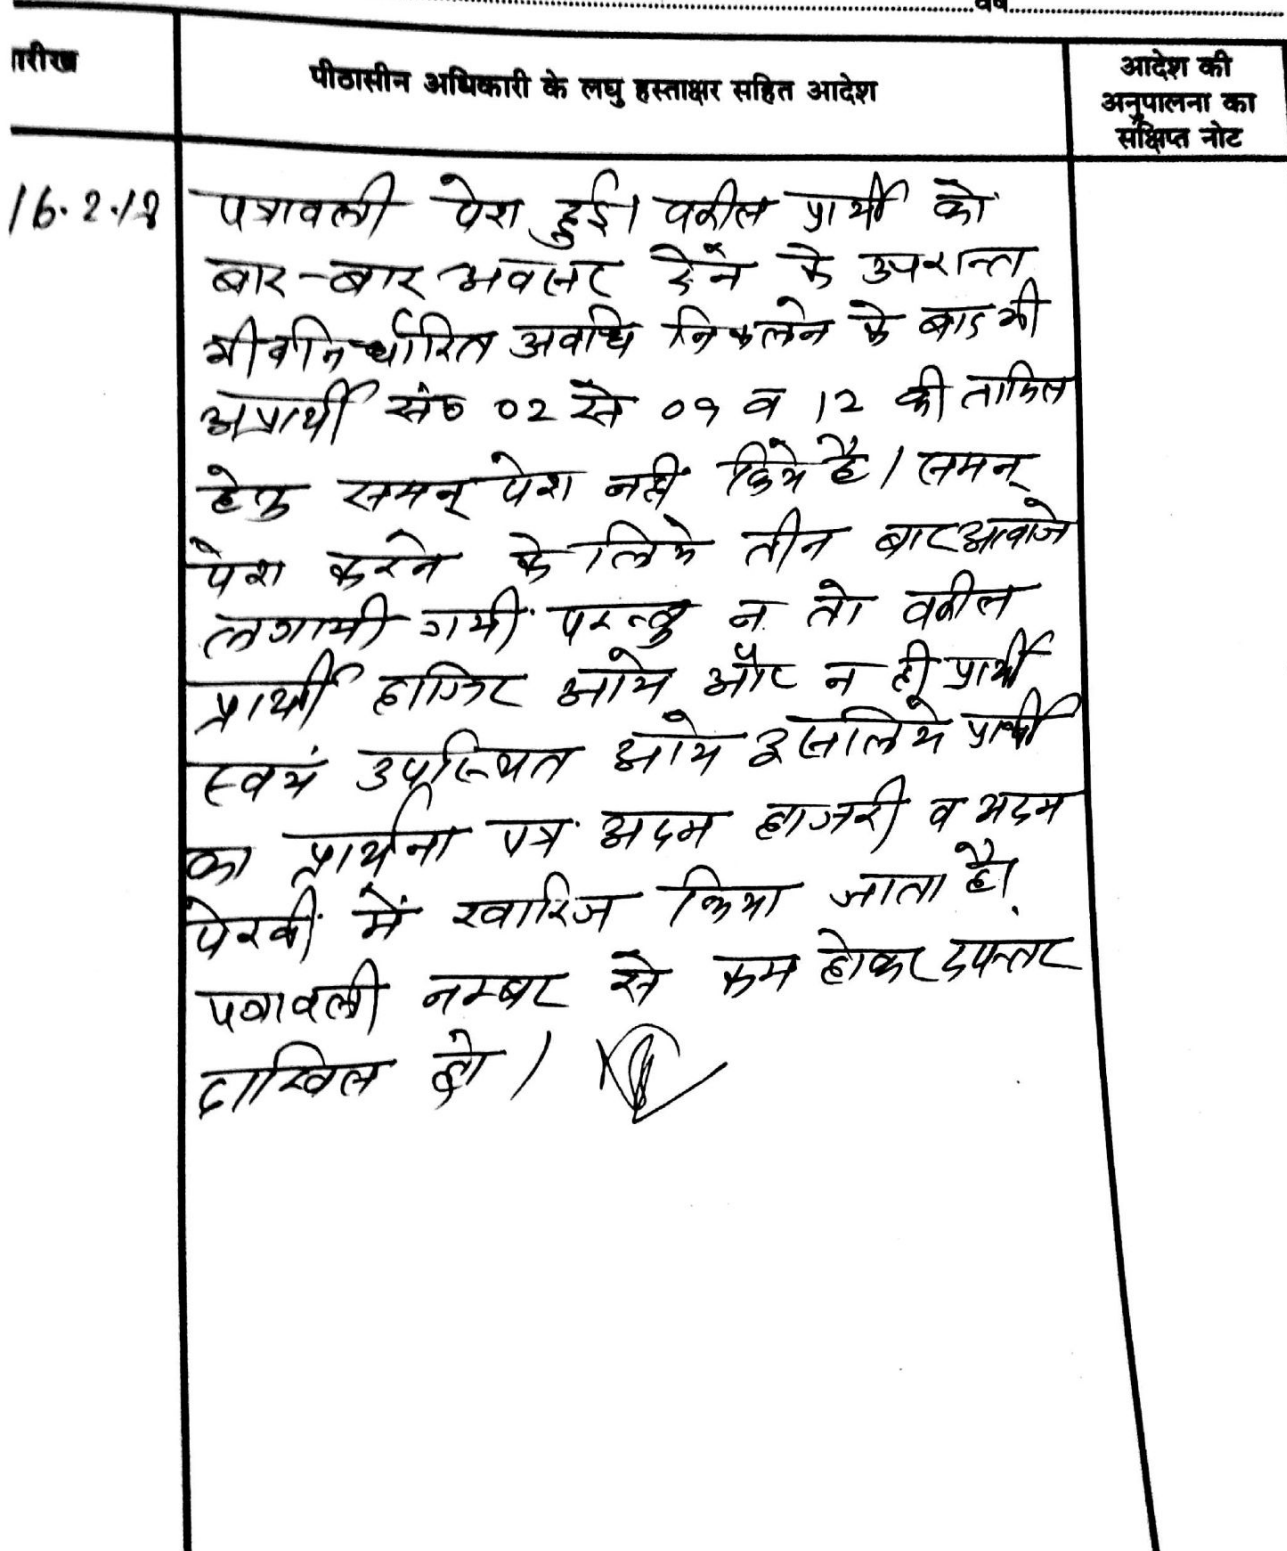 वर्ष
ारीख
पीठासीन अधिकारी के लघु हस्ताक्षर सहित आदेश
आदेश की
अनुपालना का
संक्षिप्त नोट
16.2.18
पत्रावली पेश हुई। वकील प्रार्थी को
बार-बार अवसर देने के उपरान्त
भी व निर्धारित अवधि निकलने के बाद भी
अप्रार्थी सं० 02 से 09 व 12 की तामिल
हेतु समन् पेश नहीं किये है। समन्
पेश करने के लिये तीन बार आवाजे
लगायी गयी परन्तु न तो वकील
प्रार्थी हाजिर आये और न ही प्रार्थी
स्वयं उपस्थित आये इसलिये प्रार्थी
का प्रार्थना पत्र अदम हाजरी व अदम
पेरवी में खारिज किया जाता है।
पत्रावली नम्बर से कम होकर दफ्तर
दाखिल हो।